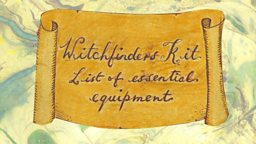 Witchfinders Kit
List of essential
equipment